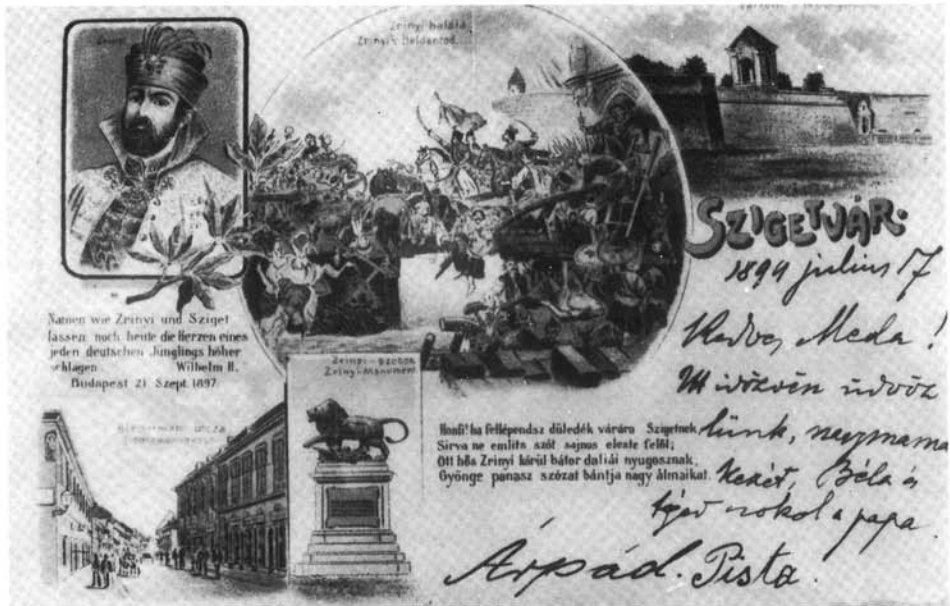 Zrinyi halála
Zrinyi's Heldentod.
SZIGETVÁR.
1899 julius 17
Kedves Meda!
Itt időzvén üdvöz
lünk, nagymama
kezét, Béla és
téged csókol a papa
Árpád. Pista.
Namen wie Zrinyi und Sziget
lassen noch heute die Herzen eines
jeden deutschen Jünglings höher
schlagen. Wilhelm II.
Budapest 21 Szept. 1897.
Zrinyi-szobor.
Zrinyi-Monument.
Honfi! ha fellépendsz düledék várára Szigetnek
Sirva ne emlits szót sajnos eleste felől;
Ott hős Zrinyi körül bátor daliái nyugosznak,
Gyönge panasz szózat bántja nagy álmaikat.